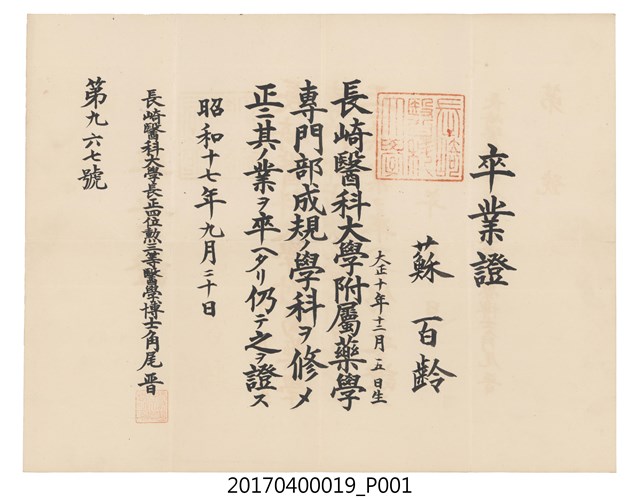 卒業證
蘇百齡
大正十年十二月五日生
長崎醫科大學附屬藥學
專門部成規ノ學科ヲ修メ
正ニ其ノ業ヲ卒ヘタリ仍テ之ヲ證ス
昭和十七年九月二十日
長崎醫科大學長正四位勲三等醫學博士角尾晋
第九六七號
20170400019_P001